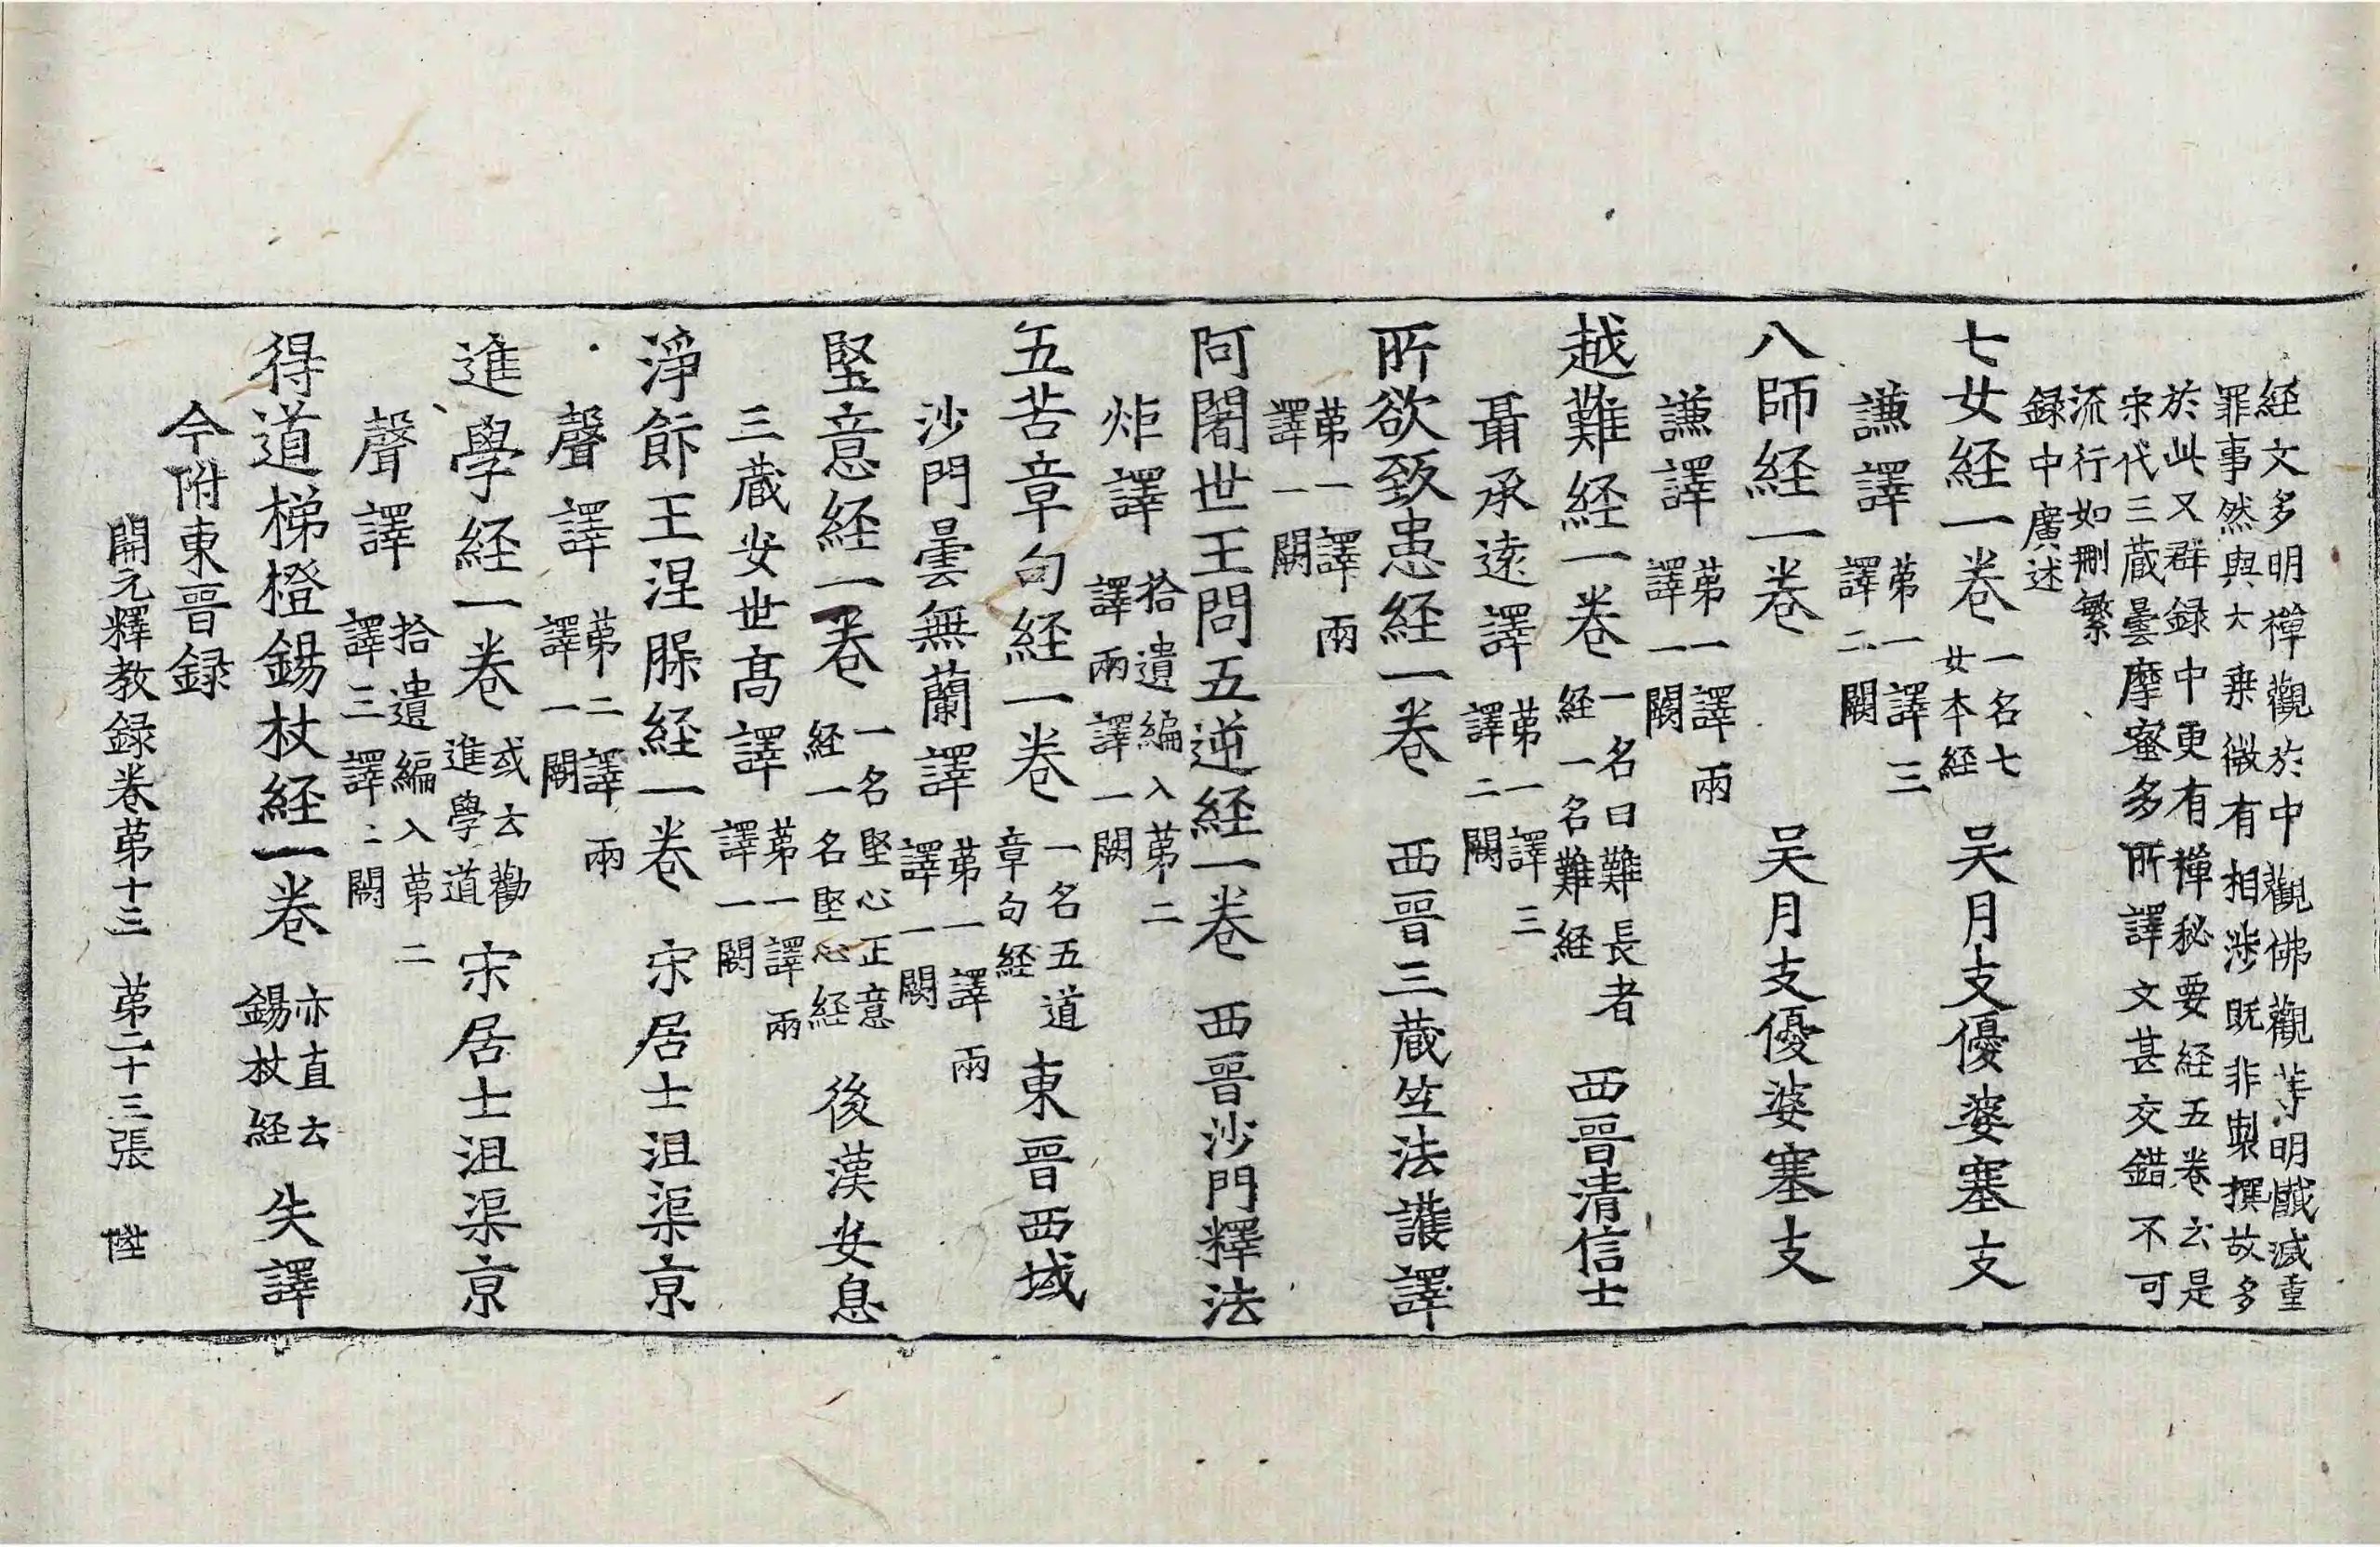 経文多明禅觀於中觀佛觀等明懺滅重
罪事然與大乗微有相渉既非製撰故多
於此又群録中更有禅秘要経五卷云是
宋代三蔵曇摩蜜多所譯文甚交錯不可
流行如刪繁
録中廣述
七女経一卷 一名七女本経 吴月支優婆塞支
謙譯 苐一譯三譯二闕
八師経一卷 吴月支優婆塞支
謙譯 苐一譯兩譯一闕
越難経一卷 一名曰難長者経一名難経 西晉清信士
聶承遠譯 苐一譯三譯二闕
所欲致患経一卷 西晉三蔵竺法護譯
苐一譯兩譯一闕
阿闍世王問五逆経一卷 西晉沙門釋法
炬譯 拾遺編入苐二譯兩譯一闕
五苦章句経一卷 一名五道章句経 東晉西域
沙門曇無蘭譯 苐一譯兩譯一闕
堅意経一卷 一名堅心正意経一名堅心経 後漢安息
三蔵安世髙譯 苐一譯兩譯一闕
淨飰王涅槃経一卷 宋居士沮渠亰
聲譯 苐二譯兩譯一闕
進學経一卷 或云勸進學道 宋居士沮渠亰
聲譯 拾遺編入苐二譯三譯二闕
得道梯橙錫杖経一卷 亦直云錫杖経 失譯
今附東晉録
開元釋教録卷苐十三 苐二十三張 陞